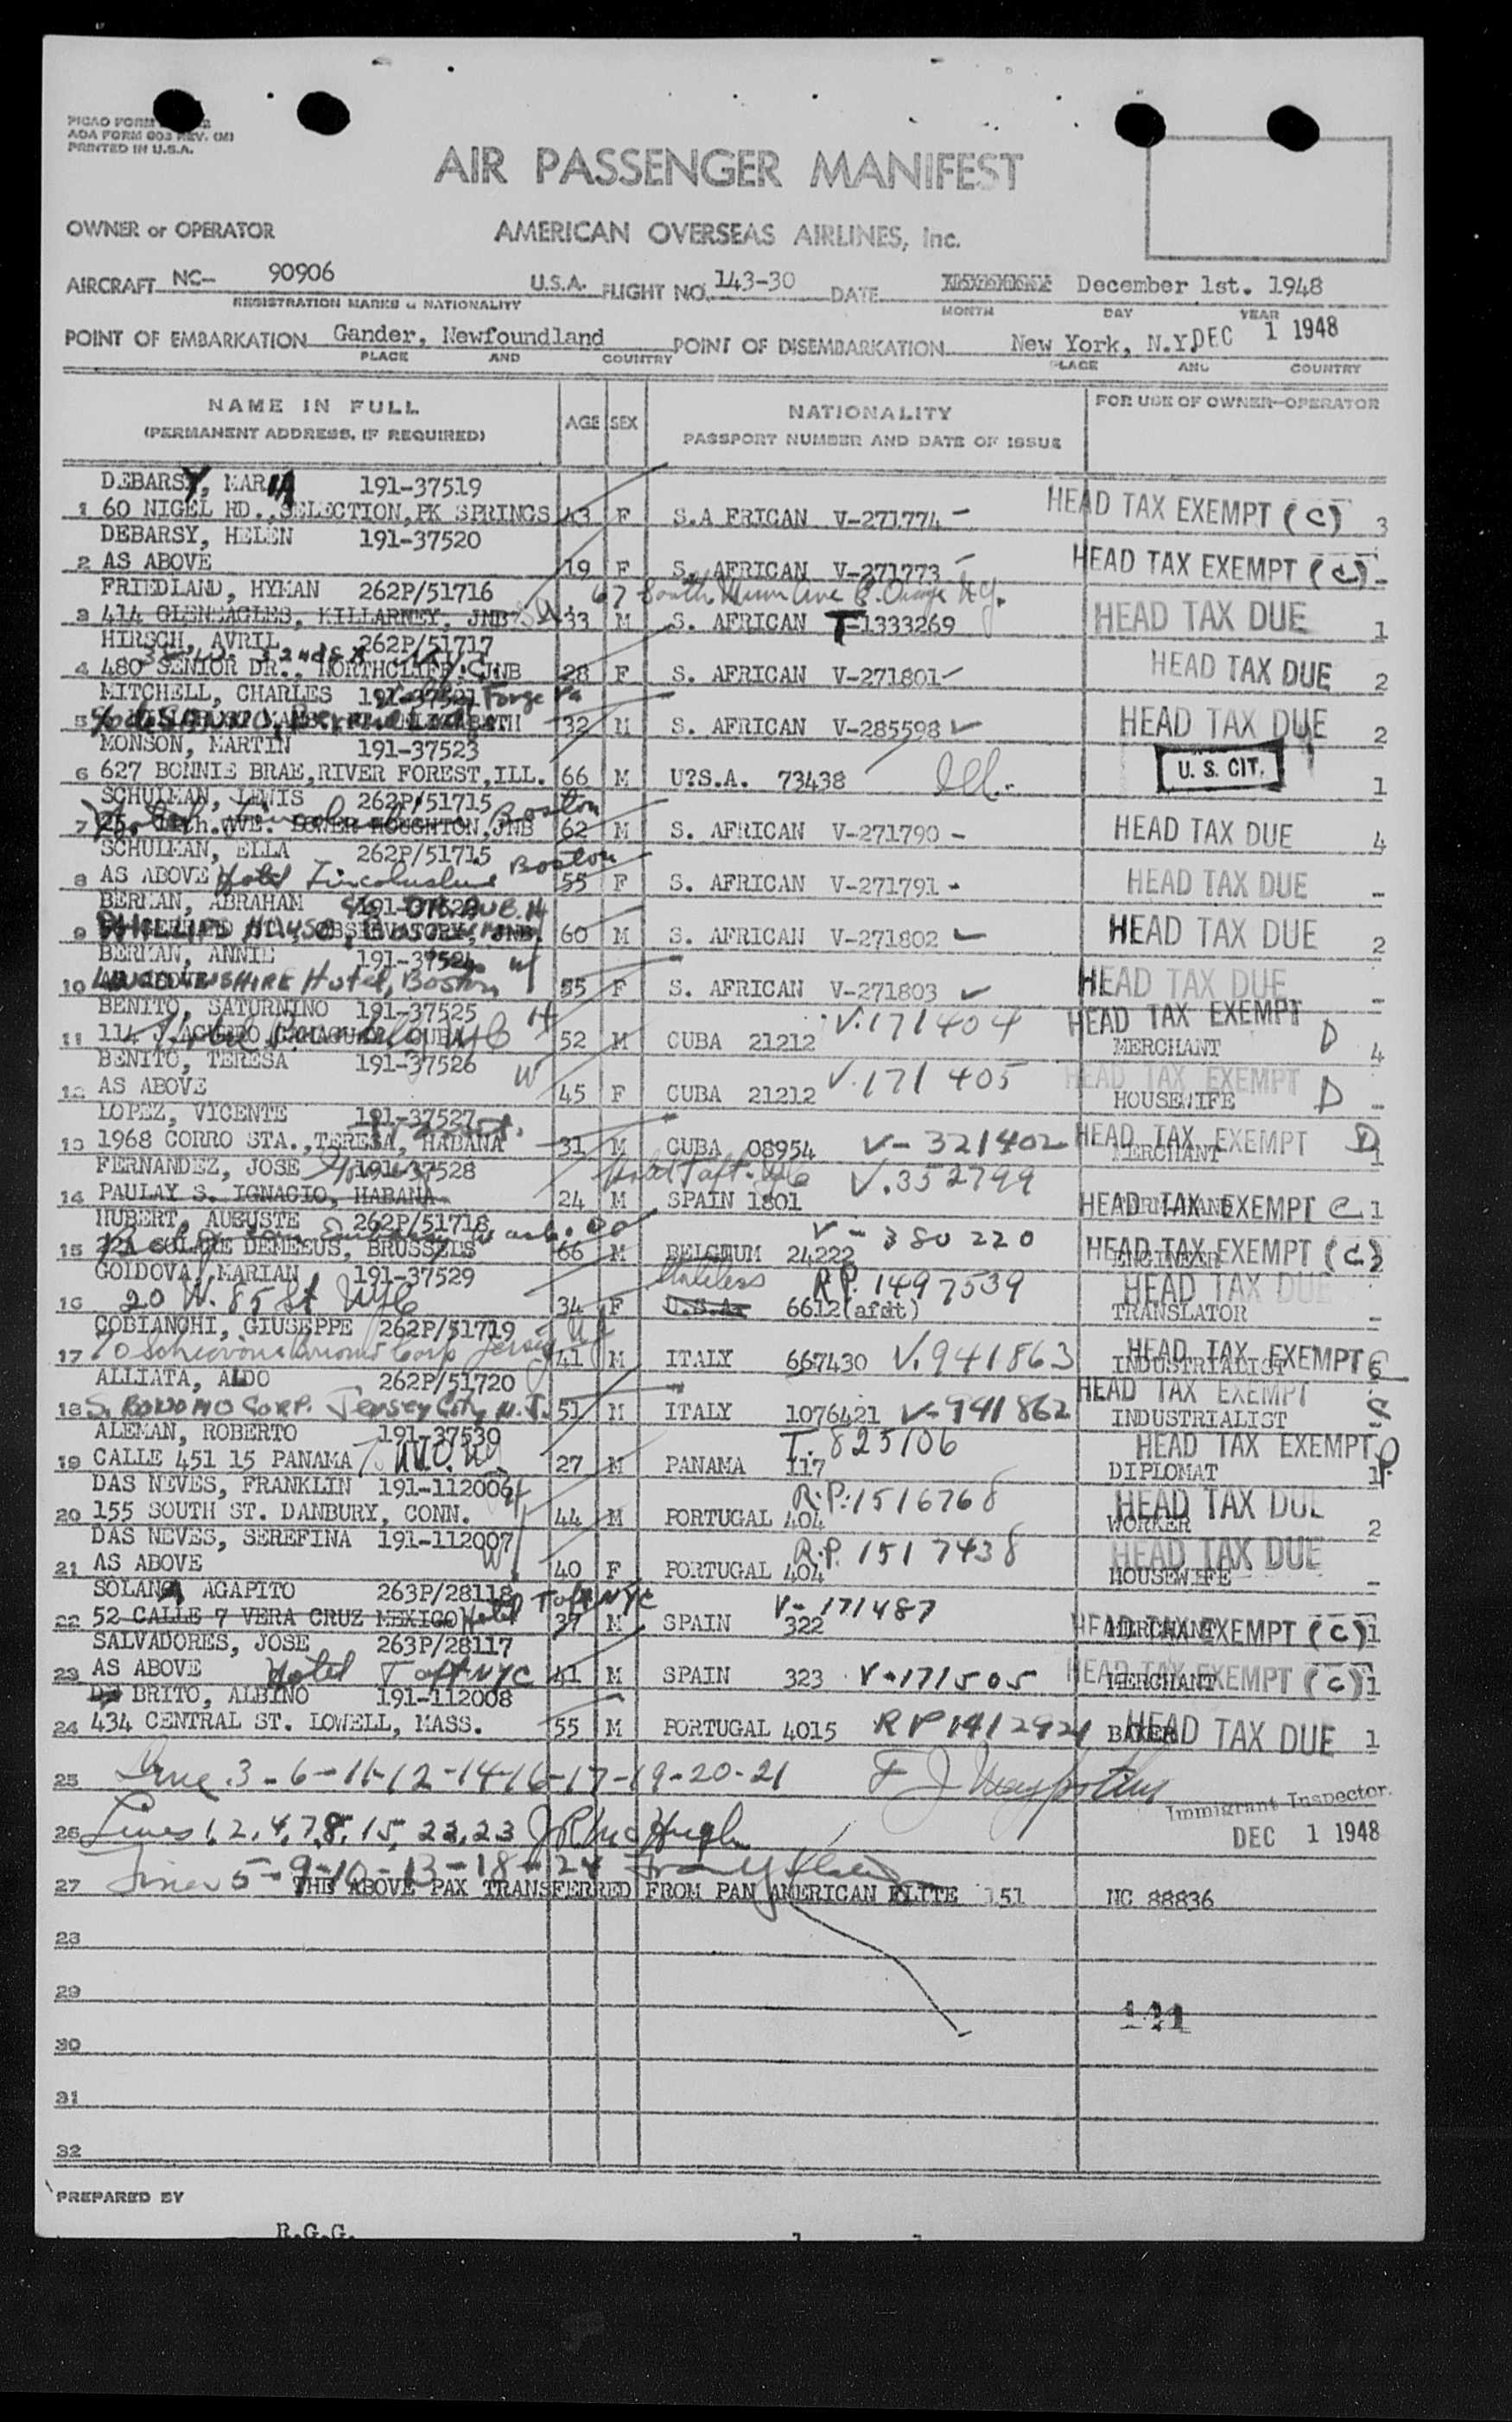 PICAO FORM
AOA FORM 603 REV. (M)
PRINTED IN U.S.A.
AIR PASSENGER MANIFEST
OWNER or OPERATOR AMERICAN OVERSEAS AIRLINES, Inc.
AIRCRAFT NC- 90906 U.S.A. FLIGHT NO. 143-30 DATE December 1st. 1948
REGISTRATION MARKS & NATIONALITY MONTH DAY YEAR
POINT OF EMBARKATION Gander, Newfoundland POINT OF DISEMBARKATION New York, N.Y. DEC 1 1948
PLACE AND COUNTRY PLACE AND COUNTRY
NAME IN FULL AGE SEX NATIONALITY FOR USE OF OWNER-OPERATOR
(PERMANENT ADDRESS, IF REQUIRED) PASSPORT NUMBER AND DATE OF ISSUE
DEBARSY, MARIA 191-37519
1 60 NIGEL RD., SELECTION, PK SPRINGS 43 F S.A FRICAN V-271774 - HEAD TAX EXEMPT (C) 3
DEBARSY, HELEN 191-37520
2 AS ABOVE 19 F S. AFRICAN V-271773 - HEAD TAX EXEMPT (C) -
FRIEDLAND, HYMAN 262P/51716
3 414 GLENEAGLES, KILLARNEY, JNB 33 M S. AFRICAN T-1333269 HEAD TAX DUE 1
HIRSCH, AVRIL 262P/51717
4 480 SENIOR DR., NORTHCLIFF, JNB 28 F S. AFRICAN V-271801 HEAD TAX DUE 2
MITCHELL, CHARLES Forge Pa
5 32 M S. AFRICAN V-285598 HEAD TAX DUE 2
MONSON, MARTIN 191-37523
6 627 BONNIE BRAE, RIVER FOREST, ILL. 66 M U?S.A. 73438 U. S. CIT. 1
SCHULMAN, LEWIS 262P/51715 Boston
7 AVE. LOWER HOUGHTON, JNB 62 M S. AFRICAN V-271790 - HEAD TAX DUE 4
SCHULMAN, ELLA 262P/51715 Boston
8 AS ABOVE Hotel 55 F S. AFRICAN V-271791 - HEAD TAX DUE -
BERMAN, ABRAHAM
9 PHILLIPS HOUSE OBSERVATORY, JNB. 60 M S. AFRICAN V-271802 HEAD TAX DUE 2
BERMAN, ANNIE 191-37524 W
10 Hotel, Boston 55 F S. AFRICAN V-271803 HEAD TAX DUE -
BENITO, SATURNINO 191-37525 H V.171404 HEAD TAX EXEMPT
11 114 52 M CUBA 21212 MERCHANT D 4
BENITO, TERESA 191-37526 W V.171405 HEAD TAX EXEMPT
12 AS ABOVE 45 F CUBA 21212 HOUSEWIFE D -
LOPEZ, VICENTE 191-37527
13 1968 CORRO STA., TERESA, HABANA 31 M CUBA 08954 V-321402 HEAD TAX EXEMPT D MERCHANT 1
FERNANDEZ, JOSE 191-37528 Hotel Taft. NYC V.352799
14 PAULAY S. IGNACIO, HABANA 24 M SPAIN 1801 HEAD TAX EXEMPT C 1
HUBERT, AUGUSTE 262P/51718 V-380220
15 BRUSSELS 66 M BELGIUM 24222 HEAD TAX EXEMPT (C) ENGINEER
GOLDOVA, MARIAN 191-37529 Stateless R.P. 1497539 HEAD TAX DUE
16 20 W. 85 St NYC 34 F U.S.A. 6612(afdt) TRANSLATOR -
COBIANCHI, GIUSEPPE 262P/51719
17 41 M ITALY 667430 V.941863 HEAD TAX EXEMPT INDUSTRIALIST
ALLIATA, ALDO 262P/51720 HEAD TAX EXEMPT
18 S. BONOMO CORP. Jersey City N.J. 51 M ITALY 1076421 V-941862 INDUSTRIALIST
ALEMAN, ROBERTO 191-37530 T. 825106 HEAD TAX EXEMPT
19 CALLE 451 15 PANAMA 27 M PANAMA 117 DIPLOMAT 1
DAS NEVES, FRANKLIN 191-112006 H R.P. 1516768 HEAD TAX DUE
20 155 SOUTH ST. DANBURY, CONN. 44 M PORTUGAL 404 WORKER 2
DAS NEVES, SEREFINA 191-112007 W R.P. 1517438 HEAD TAX DUE
21 AS ABOVE 40 F PORTUGAL 404 HOUSEWIFE -
SOLANA AGAPITO 263P/28118 Taft NYC V-171487
22 52 CALLE 7 VERA CRUZ MEXICO Hotel 37 M SPAIN 322 HEAD TAX EXEMPT (C) MERCHANT 1
SALVADORES, JOSE 263P/28117
23 AS ABOVE Hotel Taft NYC 41 M SPAIN 323 V-171505 HEAD TAX EXEMPT (C) MERCHANT 1
BRITO, ALBINO 191-112008
24 434 CENTRAL ST. LOWELL, MASS. 55 M PORTUGAL 4015 RP 1412921 BAKER HEAD TAX DUE 1
25 Line 3-6-11-12-14-16-17-19-20-21
Immigrant Inspector.
26 Lines 1, 2, 4, 7, 8, 15, 22, 23 J R McHugh DEC 1 1948
Lines 5-9-10-13-18-24
27 THE ABOVE PAX TRANSFERRED FROM PAN AMERICAN FLITE 151 NC 88836
28
29
30
31
32
PREPARED BY
R.G.G.